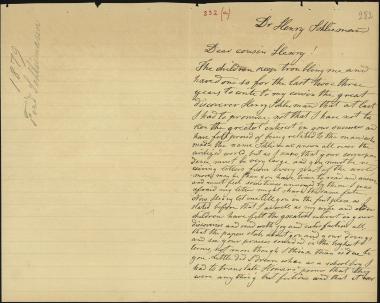 332 (a)
282
Dr Henry Schliemann
1879
Fred Schliemann
Dear cousin Henry!
The children keep troubling me and
have done so for the last two or three
years to write to my cousin the great
discoverer Henry Schliemann that at last
I had to promise, not that I have not ta
ken the greatest interest in your success and
have felt proud of being related to the man who
made the name Schliemann known all over the
civilized world, but as I know that your correspon
dence must be very large and you must be re
ceiving letters from every part of the world
more than you have time to read and answer
and must feel sometimes annoyed by them I was
afraid my letter might share the same fate.
Now please let me tell you in the first place as I
stated before that I as well as my wife and
children have felt the greatest interest in your
discoveries and read with and
that the papers state about you and your doings
and see your praises in the highest
terms, but more than I think than
you. Little did I know when as a schoolboy I
had to translate Homer's poems that they
were anything but fiction and that it ever